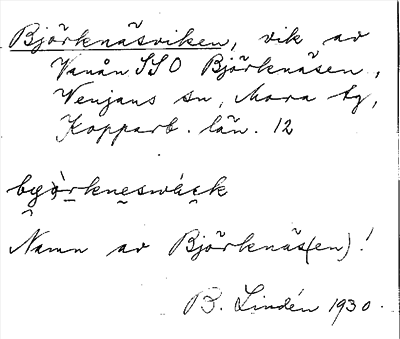 Björknäsviken, vik av
Vanån SSO Björknäsen,
Venjans sn, Mora tg,
Kopparb. län. 12
Namn av Björknäs(en)!
B. Lindén 1930.